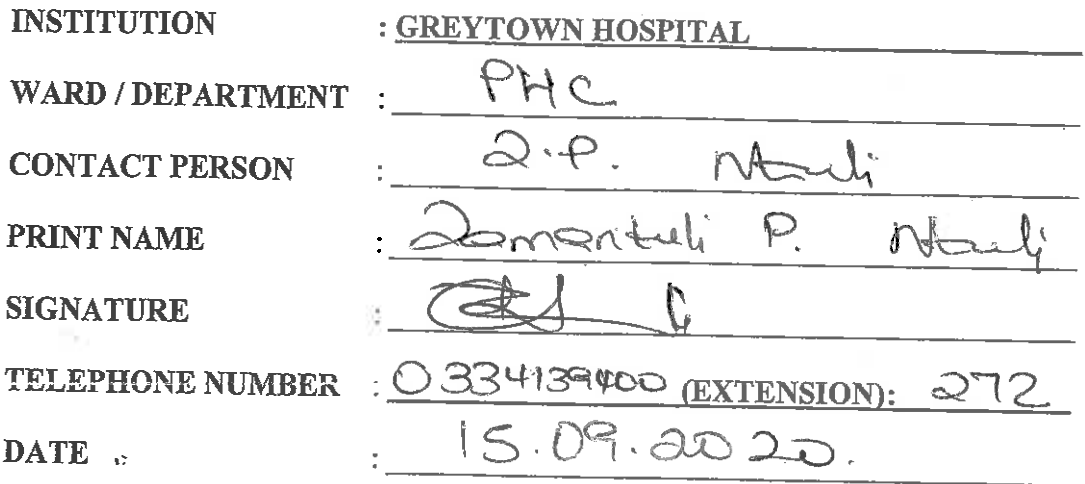 INSTITUTION : GREYTOWN HOSPITAL
WARD / DEPARTMENT : PHC
CONTACT PERSON : Z.P. Ntuli
PRINT NAME : Zamantuli P. Ntuli
SIGNATURE :
TELEPHONE NUMBER : 0334139400 (EXTENSION): 272
DATE : 15.09.2020.